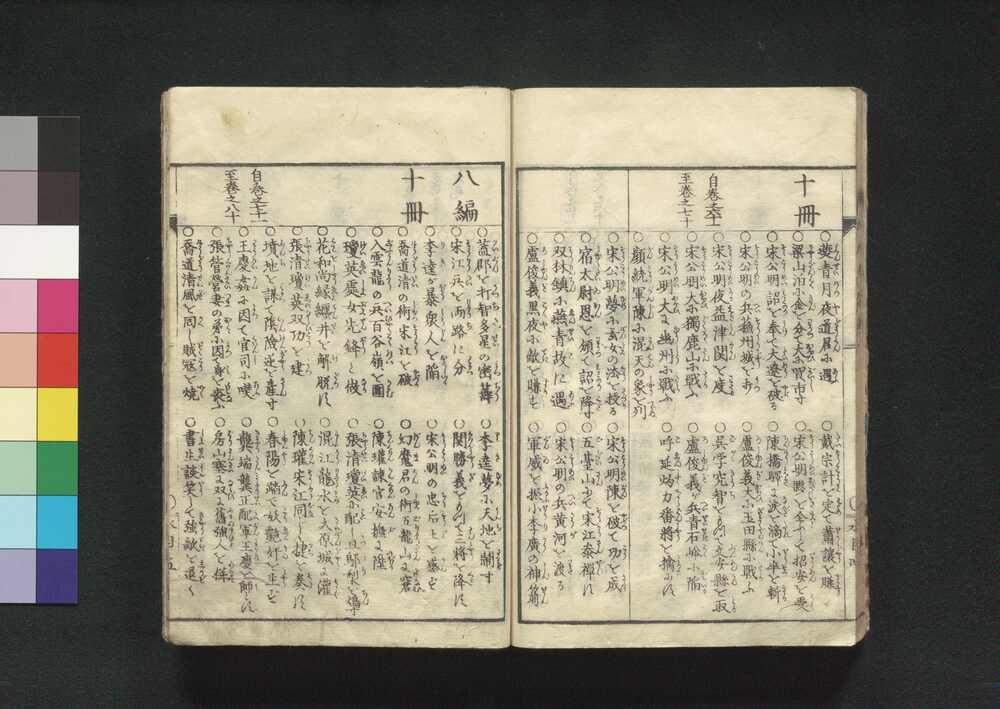 十冊
自巻之六十一
至巻之七十
○燕青月夜道君に遇
○戴宗計を定て蕭譲を賺
○梁山泊に金を分て大に買市す
○宋公明夥を全して招安を受
○宋公明詔を奉て大遼を破る
○陳橋驛に涙を滴て小卒を斬
○宋公明の兵薊州城を打
○盧俊義大に玉田縣に戰ふ
○宋公明夜益津関を度
○呉学究智をもつて文安縣を取
○宋公明大に獨鹿山に戰ふ
○盧俊義が兵青石峪に陥
○宋公明大に幽州に戰ふ
○呼延灼力番將を擒にす
○顔統軍陳に混天の象を列
○宋公明夢に玄女の法を授る
○宋公明陳を破て功を成
○宿太尉恩を頒て詔を降す
○五臺山にて宋江参禅す
○双林鎮に燕青故に遇
○宋公明の兵黄河を渡る
○盧俊義黒夜に敵を賺す
○軍威を振ふ小李廣の神箭
八編
十冊
自巻之七十一
至巻之八十
○蓋郡を打智多星の密籌
○李逵夢に天地を閙す
○宋江兵を両路に分
○関勝義をもつて三將を降す
○李逵が暴衆人を陥
○宋公明の忠后土を感ぜ
○喬道清の術宋江を破
○幻魔君の術五龍山に窘
○入雲龍の兵百谷嶺を圍
○陳瓘諫官安撫に陞
○瓊英處女先鋒と做
○張清瓊英に配し鄔梨を鴆す
○花和尚縁纏井を解脱す
○混江龍水を太原城に灌
○張清瓊英双功を建
○陳瓘宋江同く捷を奏す
○墳地を謀て陰險逆を産す
○春陽を踏で妖艷奸を生ず
○王慶姦に因て官司に喫
○龔端龔正配軍王慶を師とす
○張管營妻の弟に因て身を喪ふ
○房山寨に双て舊強人を併
○喬道清風を同し賊寇を焼
○書生談笑して強敵を退く